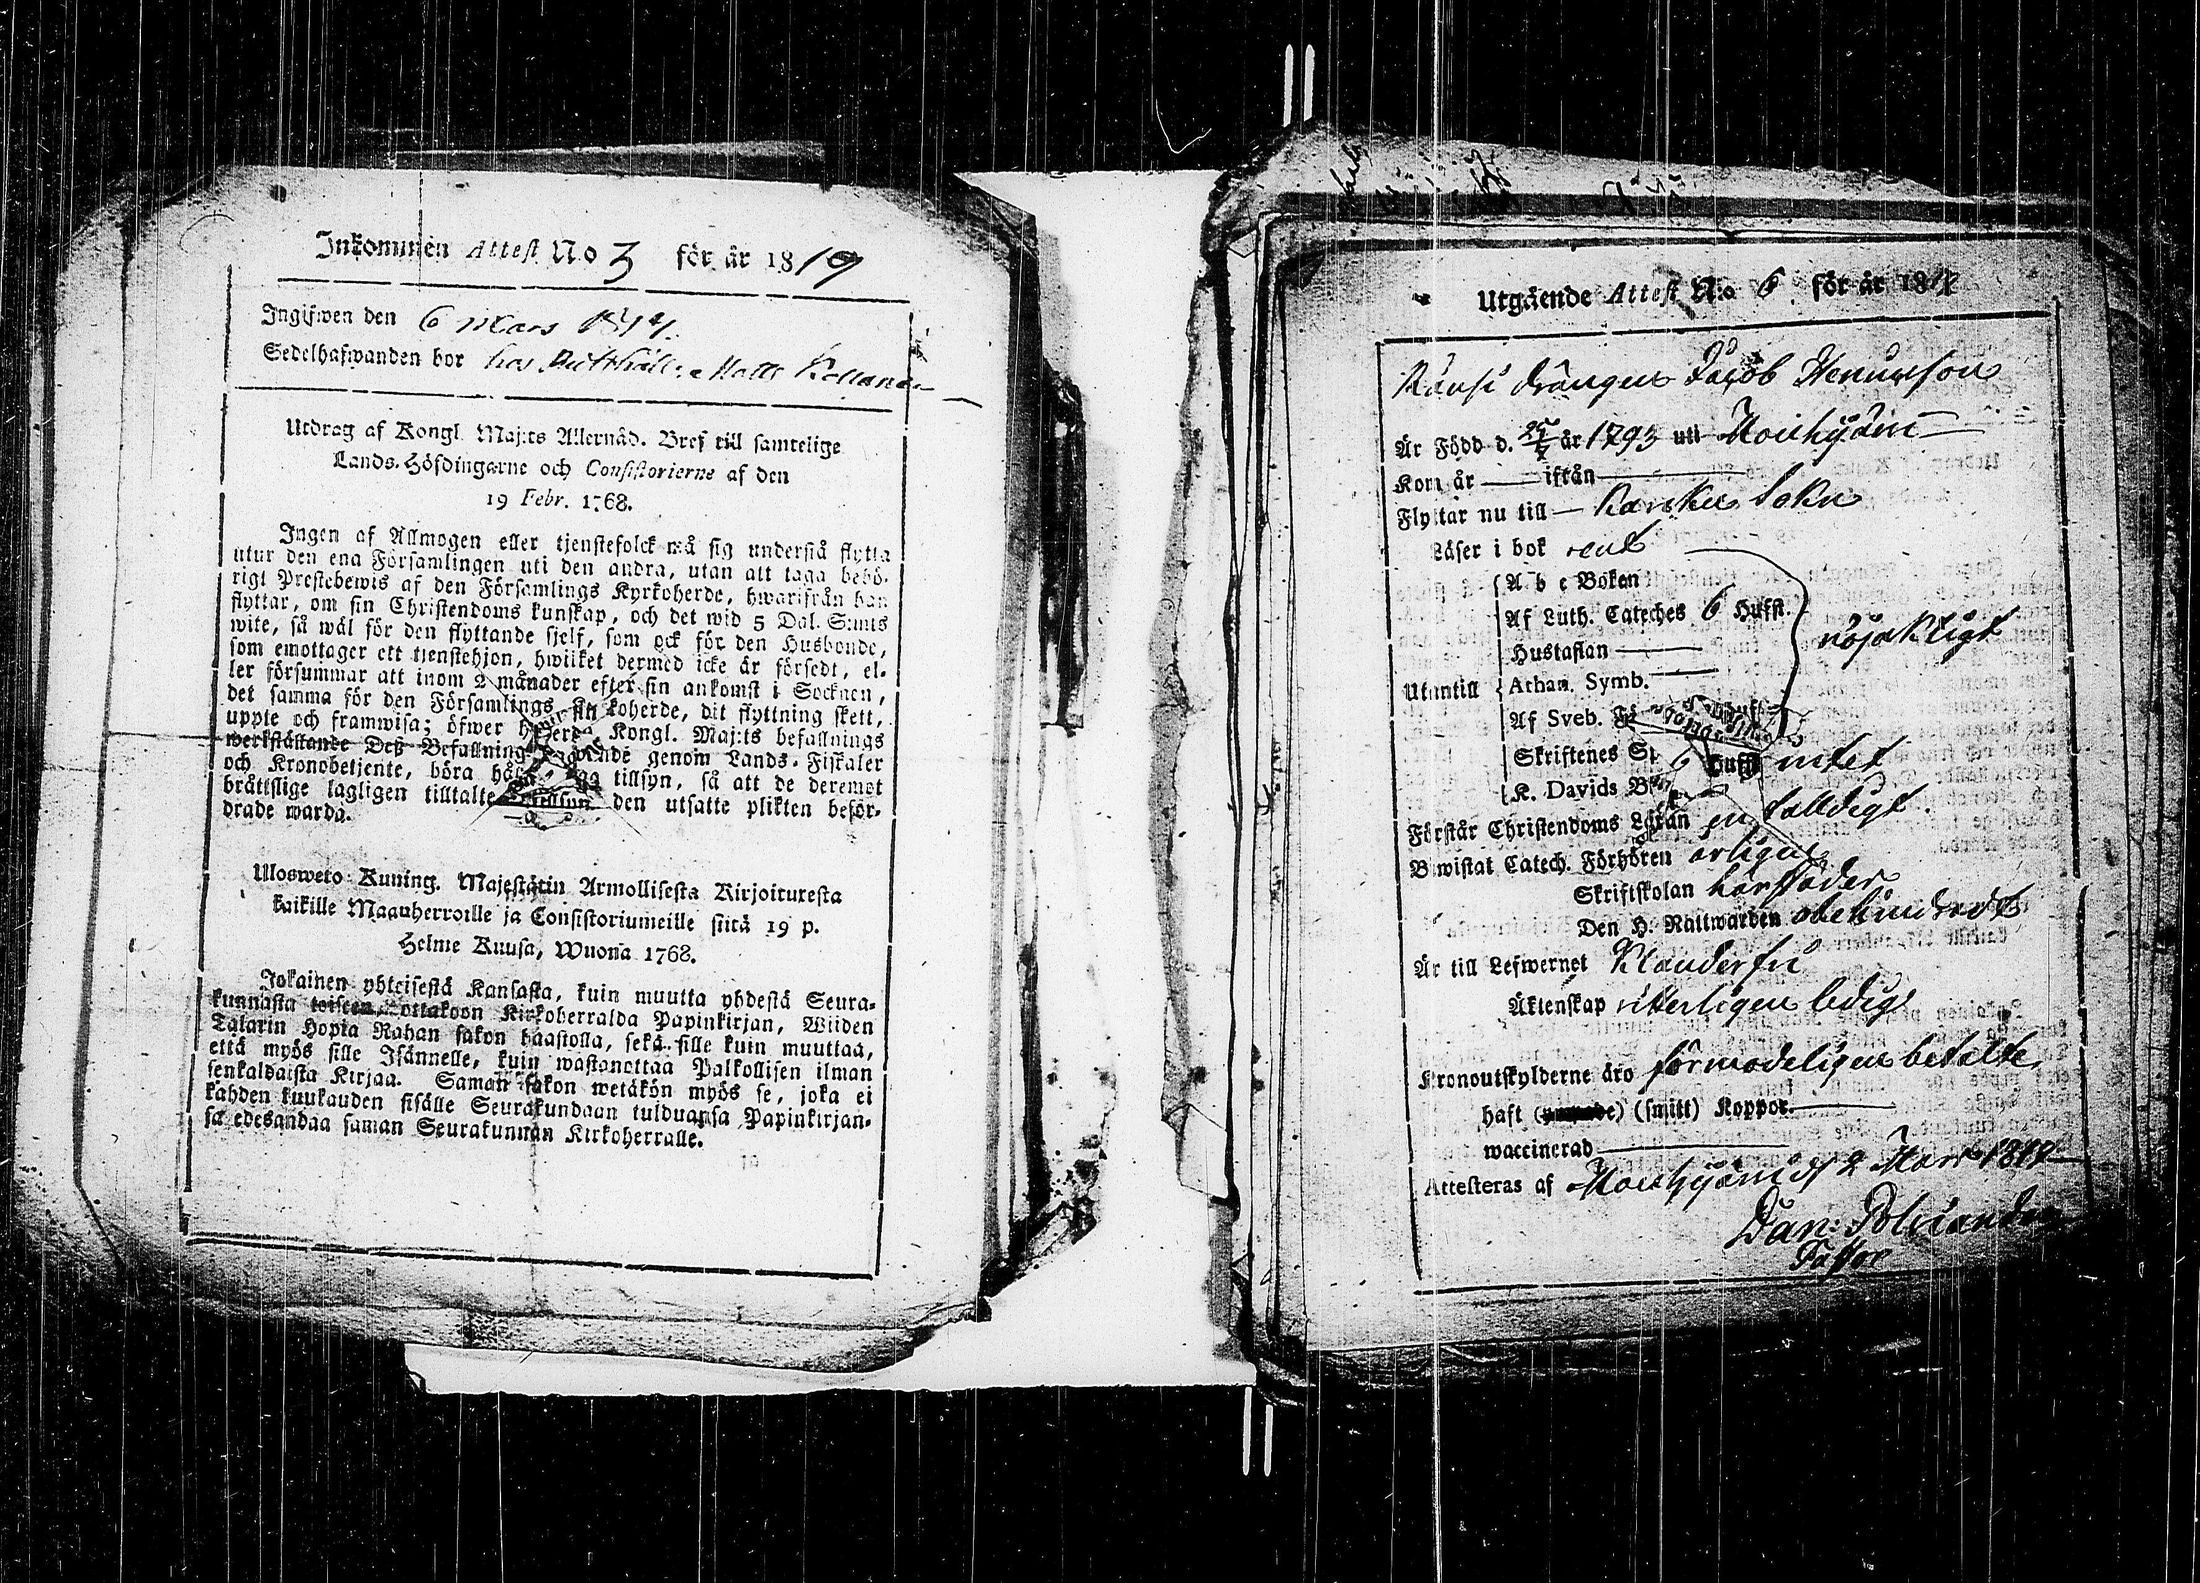 Inkommen Attest No 3 för år 1819
Ingifwen den 6 Mars
Sedelhafwanden bor hos Matts
Utdrag af Kongl. Maj:ts Allernåd. Bref till samtelige
Lands-Höfdingarne och Consistorierne af den
19 Febr. 1768.
Ingen af Allmogen eller tjenstefolck må sig understå flytta
utur den ena Församlingen uti den andra, utan att taga behö-
rigt Prestebewis af den Församlings Kyrkoherde, hwarifrån han
flyttar, om sin Christendoms kunskap, och det wid 5 Dal. S:mts
wite, så wäl för den flyttande sjelf, som ock för den Husbonde,
som emottager ett tjenstehjon, hwilket dermed icke är försedt, el-
ler försummar att inom 2 månader efter sin ankomst i Socknen,
det samma för den Församlings koherde, dit flyttning skett,
uppte och framwisa; öfwer Kongl. Maj:ts befallnings
werkställande Deß Befallning genom Lands-Fiskaler
och Kronobetjente, böra tillsyn, så att de deremot
bråttslige lagligen tilltalte den utsatte plikten beför-
drade warda.
Ulosweto Kuning. Majestätin Armollisesta Kirjoituxesta
kaikille Maanherroille ja Consistoriumeille siitä 19 p.
Helme Kuusa, Wuonna 1768.
Jokainen yhteisestä Kansasta, kuin muutta yhdestä Seura-
kunnasta toiseen, ottakoon Kirkoherralda Papinkirjan, Wiiden
Talarin Hopia Rahan sakon haastolla, sekä sille kuin muuttaa,
että myös sille Isännelle, kuin wastanottaa Palkollisen ilman
senkaldaista Kirjaa. Saman sakon wetäkön myös se, joka ei
kahden kuukauden sisälle Seurakundaan tulduansa Papinkirjan-
sa edesandaa saman Seurakunnan Kirkoherralle.
Utgående Attest N:o 6 för år 181
drängen Jacob Henricsson
Är Född d. år 1793 uti Mouhijärvi
Kom år ifrån
Flyttar nu till Karku Sokn
Läser i bok rent
A b c Boken
Af Luth. Cateches 6 Hufst.
nöjaktigt
Hustaflan
Utantill Athan. Symb.
Af Sveb.
Skriftenes 6 Hufst intet
K. Davids
Förstår Christendoms Läran enfalldigt
Bewistat Catech. Förhören årligen
Skriftskolan härstädes
Den H. Nattwarden obehindradt
Är till Lefwernet Klanderfri
Äktenskap witterligen ledig
Kronoutskylderne äro förmodeligen betalte
haft (smitt) Koppor.
waccinerad
Attesteras af Mouhijärvi d 2 Mars
Dan: Polviander
Pastor